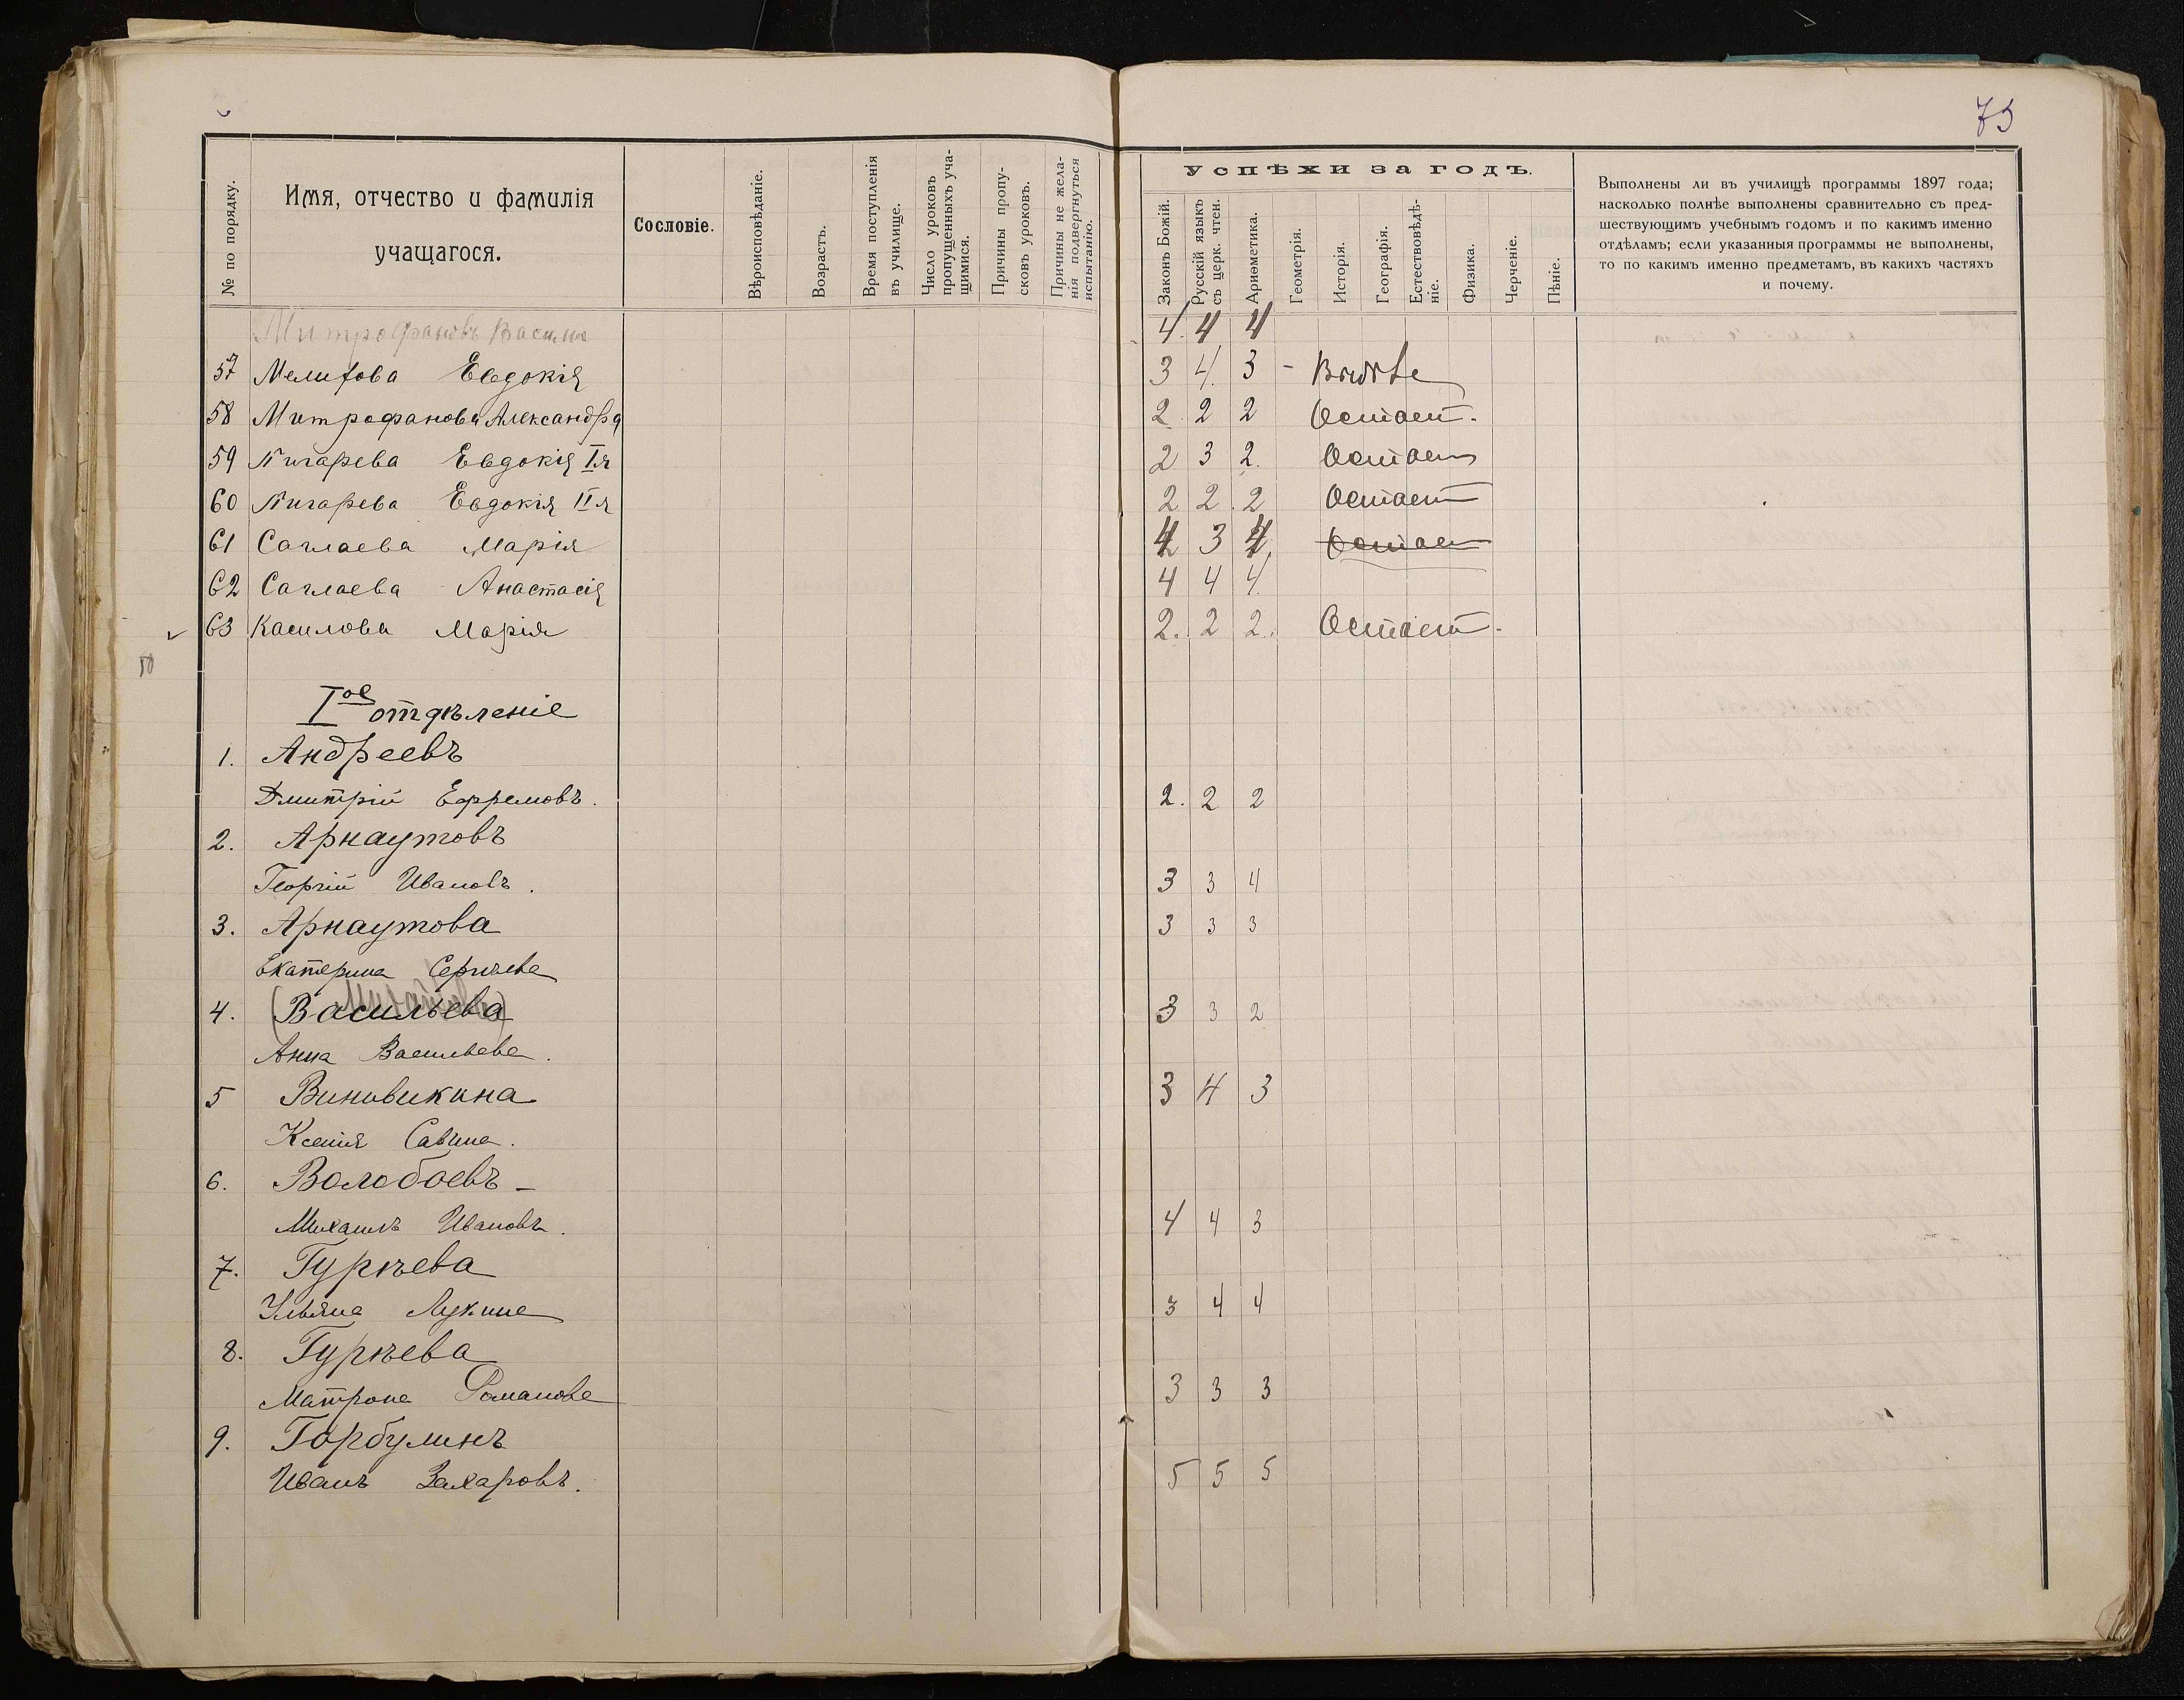 75
№ по порядку.
Имя, отчество и фамилія
учащагося.
Сословіе.
Вѣроисповѣданіе.
Возрастъ.
Время поступленія
въ училище.
Число уроковъ
пропущенныхъ уча-
щимися.
Причины пропу-
сковъ уроковъ.
Причины не жела-
нія подвергнуться
испытанію.
УСПѢХИ ЗА ГОДЪ.
Законъ Божій.
Русскій языкъ
съ церк. чтен.
Ариѳметика.
Геометрія.
Исторія.
Географія.
Естествовѣдѣ-
ніе.
Физика.
Черченіе.
Пѣніе.
Выполнены ли въ училищѣ программы 1897 года;
насколько полнѣе выполнены сравнительно съ пред-
шествующимъ учебнымъ годомъ и по какимъ именно
отдѣламъ; если указанныя программы не выполнены,
то по какимъ именно предметамъ, въ какихъ частяхъ
и почему.
Митрофановъ 4. 4 4
57 Мелихова Евдокія 3 4. 3 -
58 Митрофанова Александра 2. 2 2 Остает.
59 Пигарева Евдокія Iя 2 3 2. Остает
60 Пигарева Евдокія IIя 2 2. 2 Остает
61 Саглаева Марія 4 3 4. Остает
62 Саглаева Анастасія 4 4 4.
63 Касилова Марія 2. 2 2. Остает.
50
Iое отдѣленіе
1. Андреевъ
Дмитрій Ефремовъ. 2. 2 2
2. Арнаутовъ
Георгій Ивановъ. 3 3 4
3. Арнаутова 3 3 3
Екатерина Сергѣева
4. (Васильева) 3 3 2
Анна Васильева.
5 Виновикина 3 4 3
Ксенія Савина.
6. Волобоевъ -
Михаилъ Ивановъ. 4 4 3
7. Гурѣева
Ульяна Лукина 3 4 4
8. Гурѣева
Матрона Романова 3 3 3
9. Горбулинъ
Иванъ Захаровъ. 5 5 5